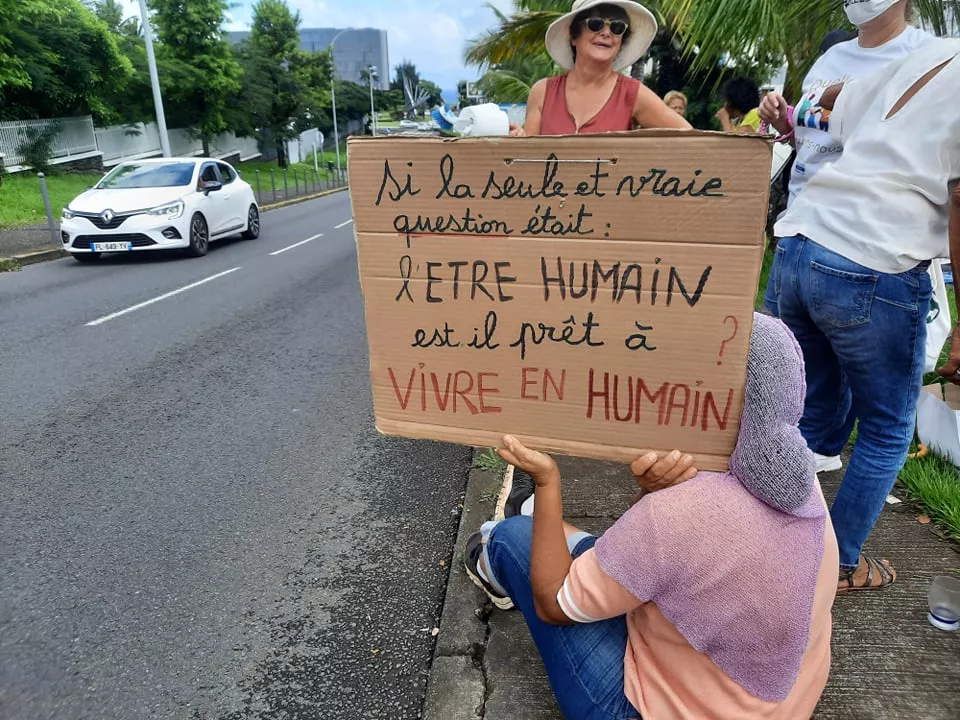 Si la seule et vraie
question était :
l'ETRE HUMAIN
est il prêt à ?
VIVRE EN HUMAIN